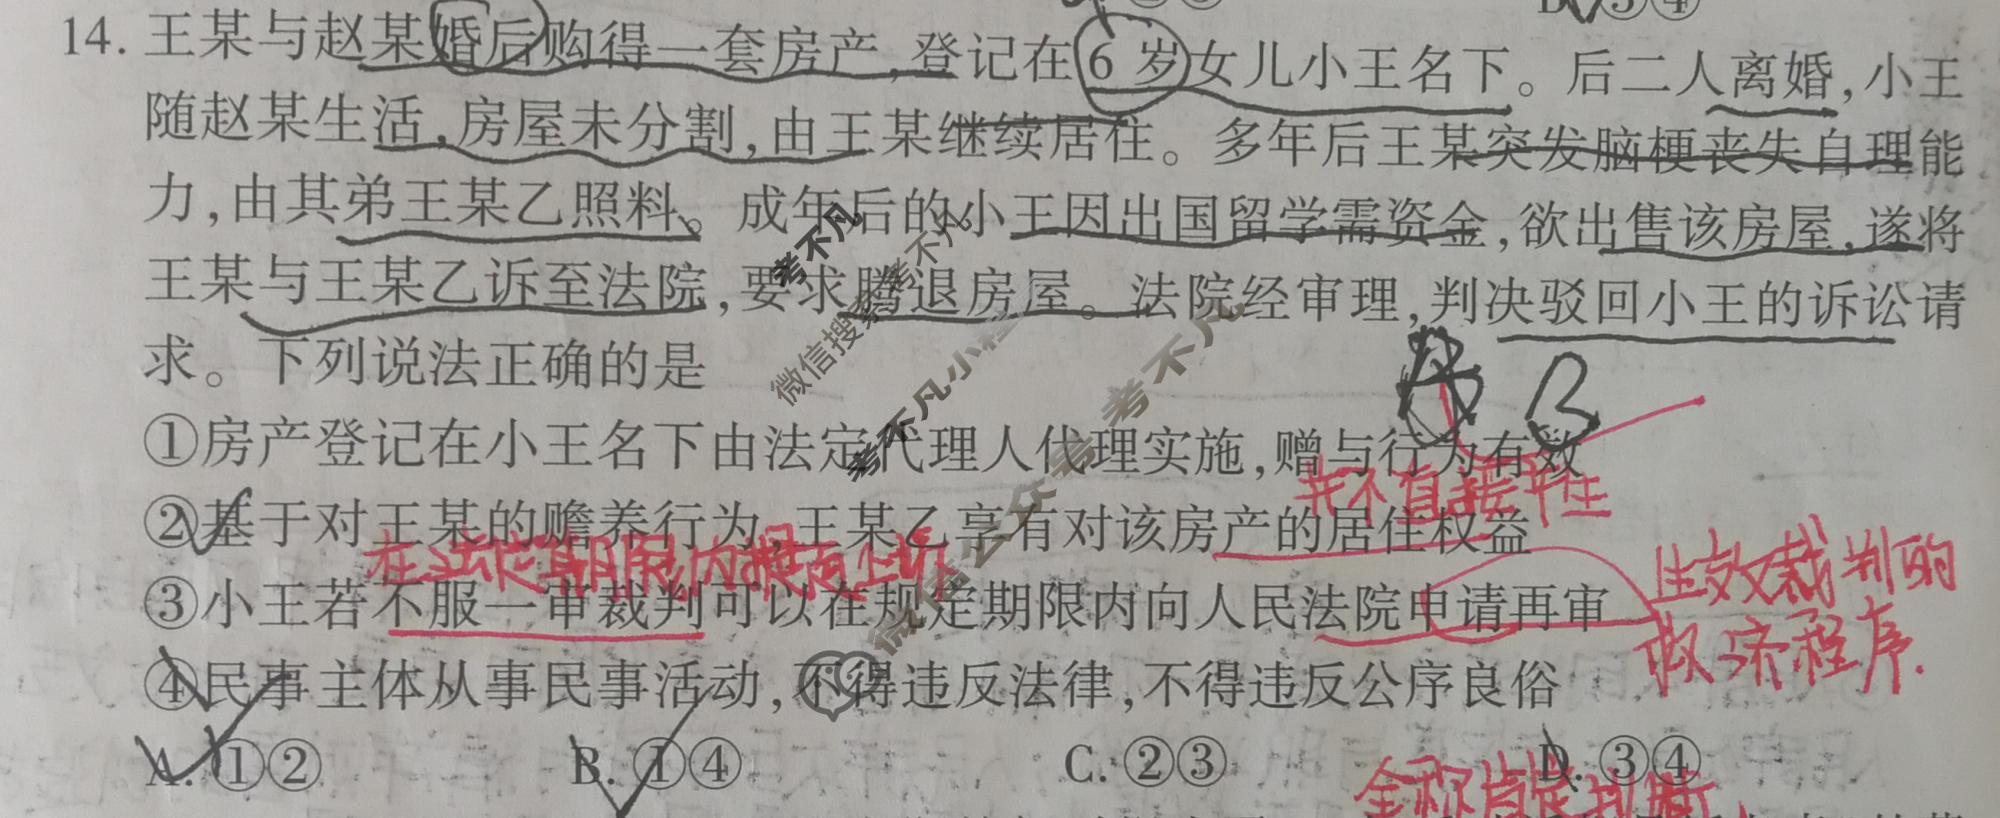 14. 王某与赵某婚后购得一套房产,登记在6岁女儿小王名下。后二人离婚,小王
随赵某生活,房屋未分割,由王某继续居住。多年后王某突发脑梗丧失自理能
力,由其弟王某乙照料。成年后的小王因出国留学需资金,欲出售该房屋,遂将
王某与王某乙诉至法院,要求腾退房屋。法院经审理,判决驳回小王的诉讼请
求。下列说法正确的是
B
①房产登记在小王名下由法定代理人代理实施,赠与行为有效
并不直接产生
②基于对王某的赡养行为,王某乙享有对该房产的居住权益
在法定期限内提起上诉
生效裁判的
③小王若不服一审裁判可以在规定期限内向人民法院申请再审
救济程序.
④民事主体从事民事活动,不得违反法律,不得违反公序良俗
A. ①② B. ①④ C. ②③ D. ③④
全称肯定判断
考不凡
微信搜索
考不凡
考不凡小程序
考不凡
微信公众号